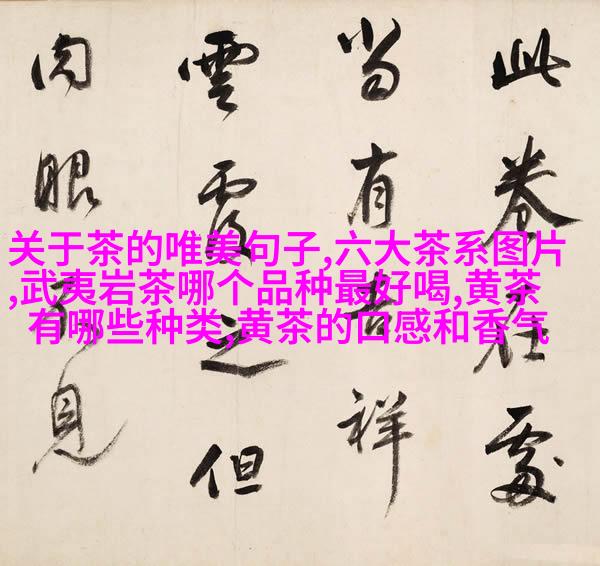 此卷在處
當有吉祥
雲覆之但
肉眼不見
关于茶的唯美句子,六大茶系图片
,武夷岩茶哪个品种最好喝,黄茶
有哪些种类,黄茶的口感和香气